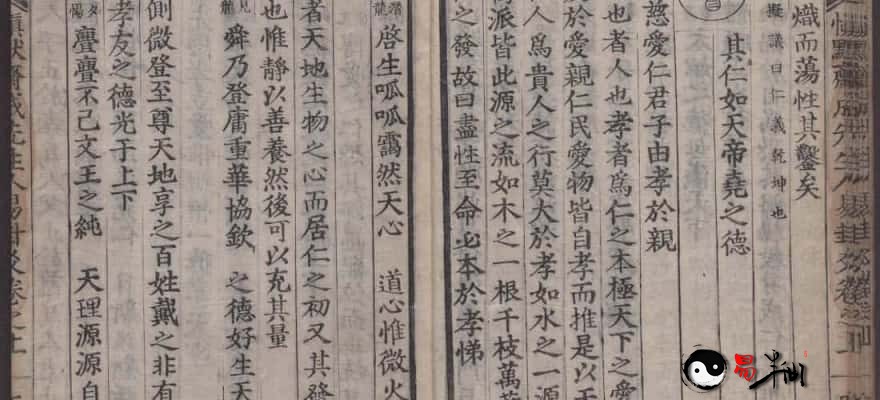 熾而蕩性其鑿矣
擬議曰仁義乾坤也
其仁如天帝堯之德
慈愛仁君子由孝於親
也者人也孝者爲仁之本極天下之愛
於愛親仁民愛物皆自孝而推是以天
人爲貴人之行莫大於孝如水之一源
派皆此源之流如木之一根千枝萬葉
之發故曰盡性至命必本於孝悌
啓生呱呱靄然天心 道心惟微火
者天地生物之心而居仁之初又其發
也惟靜以善養然後可以充其量
舜乃登庸重華協欽 之德好生天
側微登至尊天地享之百姓戴之非有
孝友之德光于上下
亹亹不已文王之純 天理源源自
易半仙